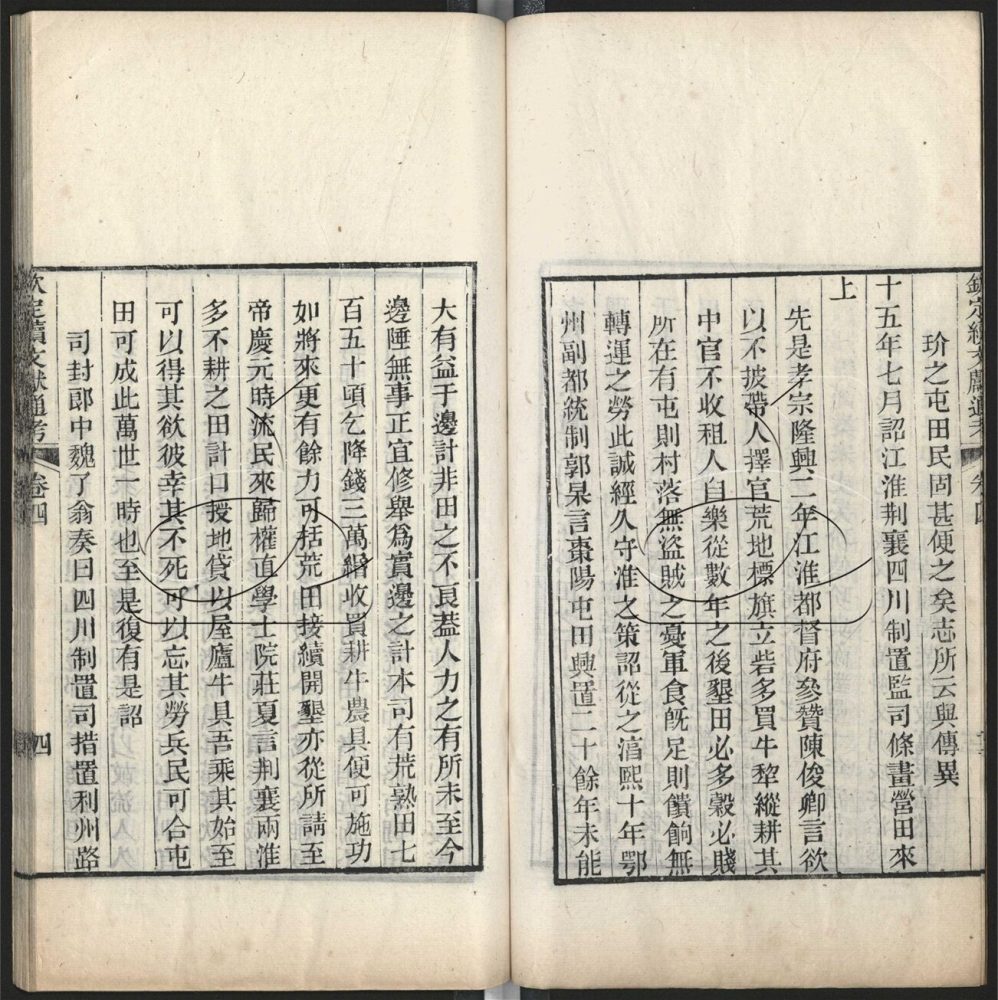 欽定續文獻通考 卷四
玠之屯田民固甚便之矣志所云與傳異
十五年七月詔江淮荆襄四川制置監司條畫營田來
上
先是孝宗隆興二年江淮都督府參贊陳俊卿言欲
以不披帶人擇官荒地標旗立砦多買牛犂縱耕其
中官不收租人自樂從數年之後墾田必多穀必賤
所在有屯則村落無盜賊之憂軍食旣足則饋餉無
轉運之勞此誠經久守淮之策詔從之淳熙十年鄂
州副都統制郭杲言棗陽屯田興置二十餘年未能
大有益于邊計非田之不良葢人力之有所未至今
邊陲無事正宜修舉爲實邊之計本司有荒熟田七
百五十頃乞降錢三萬緡收買耕牛農具便可施功
如將來更有餘力可括荒田接續開墾亦從所請至
帝慶元時流民來歸權直學士院莊夏言荆襄兩淮
多不耕之田計口授地貸以屋廬牛具吾乘其始至
可以得其欲彼幸其不死可以忘其勞兵民可合屯
田可成此萬世一時也至是復有是詔
司封郎中魏了翁奏曰四川制置司措置利州路
欽定續文獻通考 卷四 四